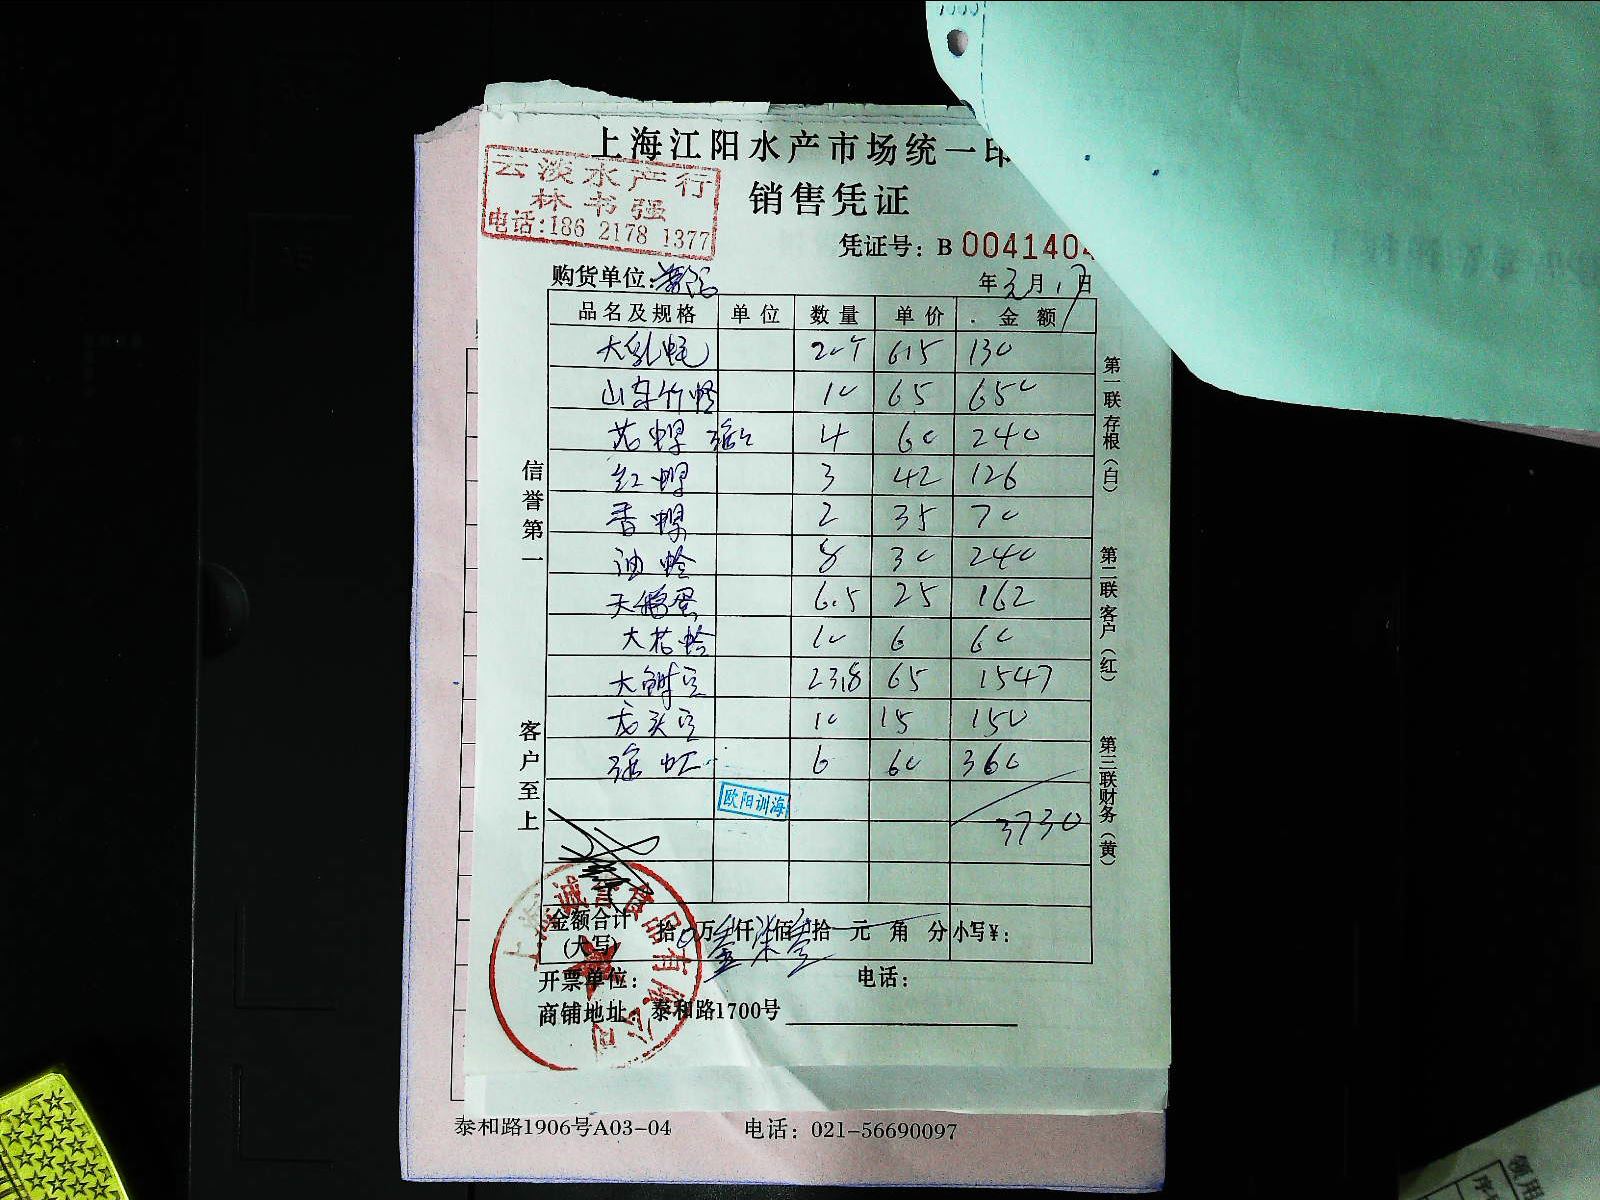 上海江阳水产市场统一印
云淡水产行
林书强
电话:186 2178 1377
销售凭证
凭证号: B 0041404
购货单位:
年 3月17日
品名及规格 单位 数量 单价 金额
大乳蚝 20个 6.5 130
山东竹蛏 10 65 650
花蟳 4 60 240
红蟳 3 42 126
香蟳 2 35 70
油蛤 8 30 240
天鹅蛋 6.5 25 162
大花蛤 10 6 60
大鲥豆 23.8 65 1547
龙头豆 10 15 150
6 60 360
欧阳训海
3730
金额合计(大写) 拾 万叁仟柒佰叁拾 元 角 分 小写¥:
开票单位: 电话:
商铺地址: 泰和路1700号
信誉第一
客户至上
第一联存根(白)
第二联客户(红)
第三联财务(黄)
泰和路1906号A03-04 电话: 021-56690097